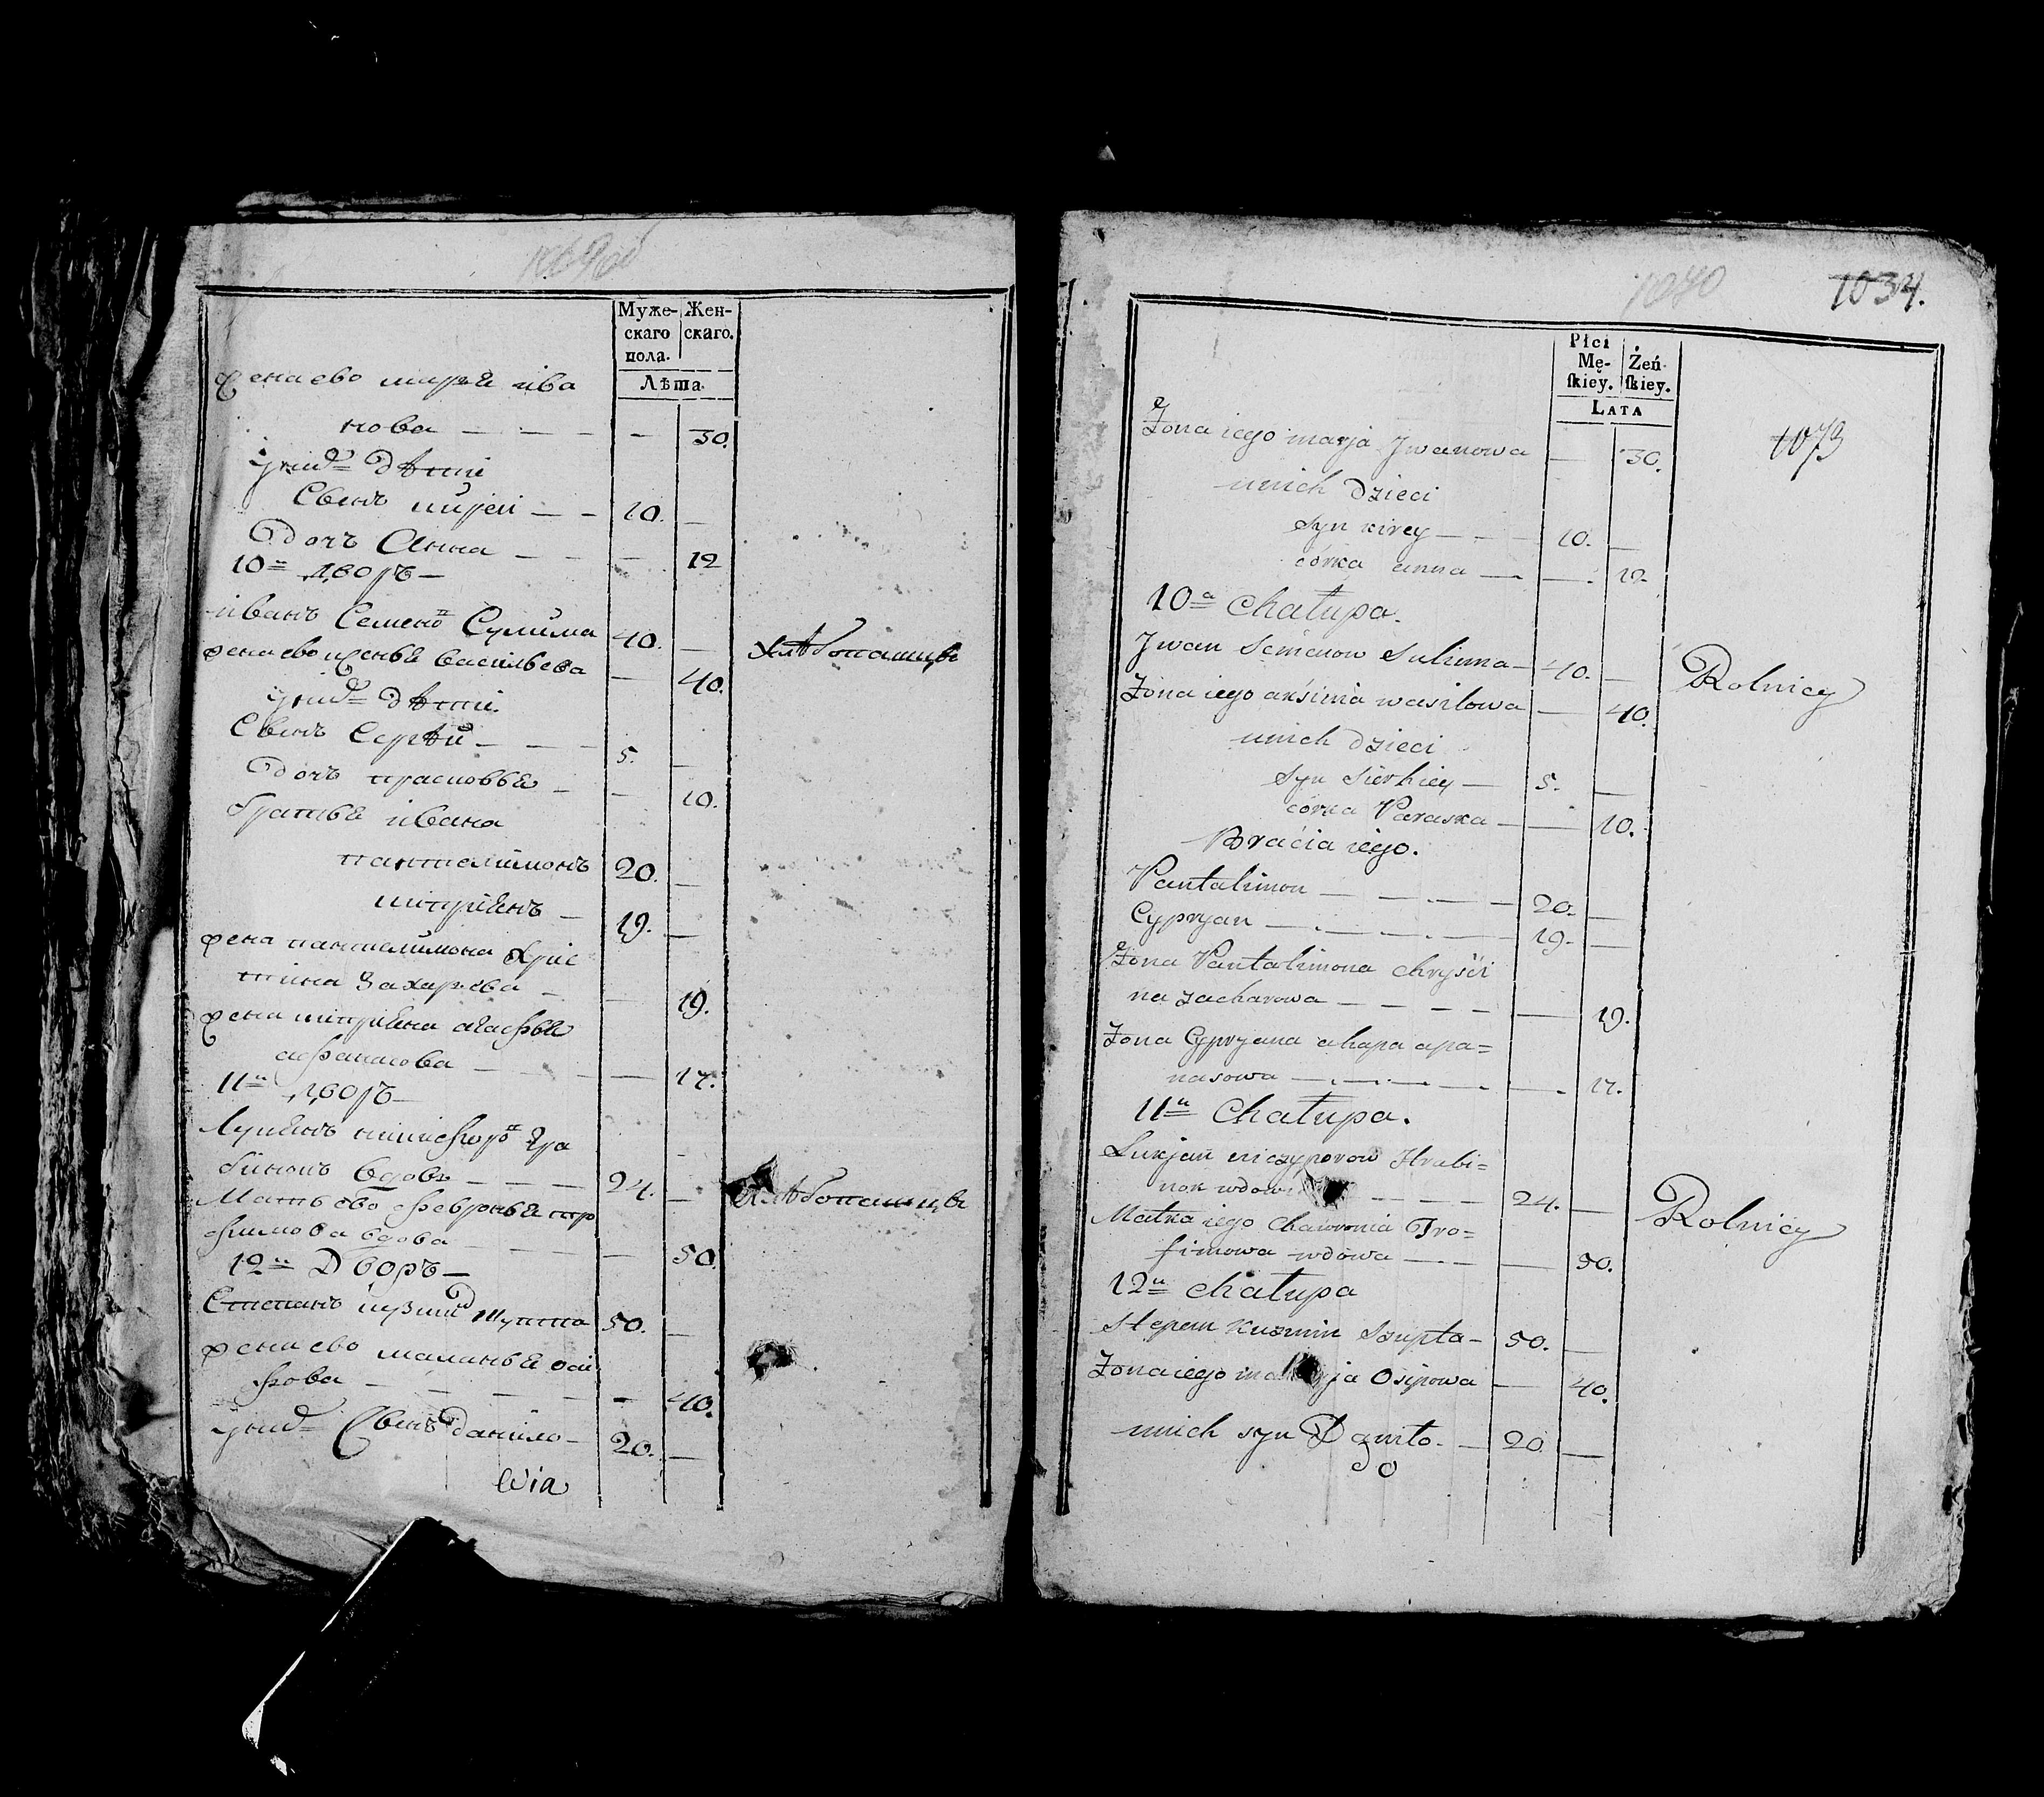 Муже-
скаго
пола.
Жен-
скаго.
Лѣта.
жена ево марья ива
нова — — — — 30.
у нихъ дѣти
Сынъ кирей — — 10. —
Дочь Анна — — — 12
10й Дворъ —
иванъ Семенов Сулима 40. — хлѣбопашцы
жена ево ксенья васильева — 40.
у нихъ дѣти.
Сынъ Сергѣй — — 5. —
Дочь прасковья — — 10.
братья ивана
пантелимонъ 20. —
киприянъ — 19. —
жена пантелимона Хрис
тина Захарова — — 19.
жена киприяна агафья
афанасова — — — 17.
11й Дворъ —
Лукьянъ никифоров гра
бинокъ вдовъ — — — 24. — хлѣбопашцы
Мать ево февронья тро
фимова вдова — — — 50.
12й Дворъ —
Степанъ кузмин шупта 50. —
жена ево маланья оси
фова — — — — — 40.
у нихъ Сынъ данило — 20. —
1034.
1040
Płci
Mę-
skiey.
Żeń-
skiey.
LATA
1073
Żona iego marja Jwanowa — 30.
unich dzieci
syn kirey — — — 10. —
córka anna — — 12.
10a Chałupa.
Jwan Semenow Sulima — 40. — Rolnicy
Żona iego aksinia wasilowa — 40.
unich dzieci
syn Sierhiey — 5. —
córka Paraska — — 10.
Bracia iego.
Pantalimon — — — — 20. —
Cypryan — — — — — 19. —
Żona Pantalimona chryści
na zacharowa — — — — — 19.
Żona Cypryana ahapa apa=
nasowa — — — — — — 17.
11a Chałupa.
Lukjan niczyporow Hrabi=
nok wdow — — — 24. — Rolnicy
Matka iego Chawronia Tro=
fimowa wdowa — — — 50.
12a Chałupa
Stepan Kuzmin Szupta — 50. —
Żona iego ja Osipowa — 40.
unich syn — 20 —